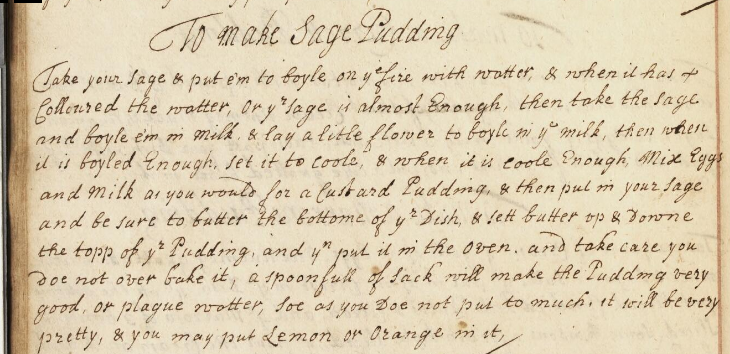 To make Sage Pudding
Take your Sage & put em to boyle on yͤ fire with watter, & when it has
Colloured the watter, or yʳ Sage is almost Enough, then take the Sage
and boyle em in milk, & lay a litle flower to boyle in yʳ milk, then when
it is boyled Enough, set it to coole, & when it is coole Enough, Mix Eggs
and Milk as you would for a Custard Pudding, & then put in your Sage
and be sure to butter the bottome of yʳ Dish, & sett butter up & Downe
the topp of yʳ Pudding, and yⁿ put it in the Oven. and take care you
Doe not over bake it, a spoonfull of Sack will make the Pudding very
good, or plague watter, soe as you Doe not put to much, it will be very
pretty, & you may put Lemon or Orange in it,